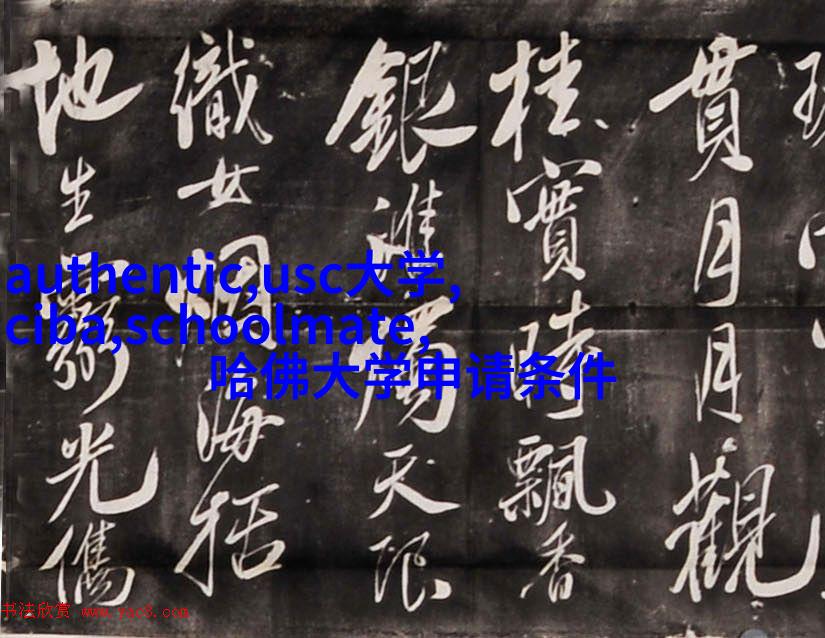 貫月月觀
桂實時飄香
銀淮 天限
織女烟海
地生 光儁
authentic,usc大学,
ciba,schoolmate,
哈佛大学申请条件
书法欣赏 www.yac8.com